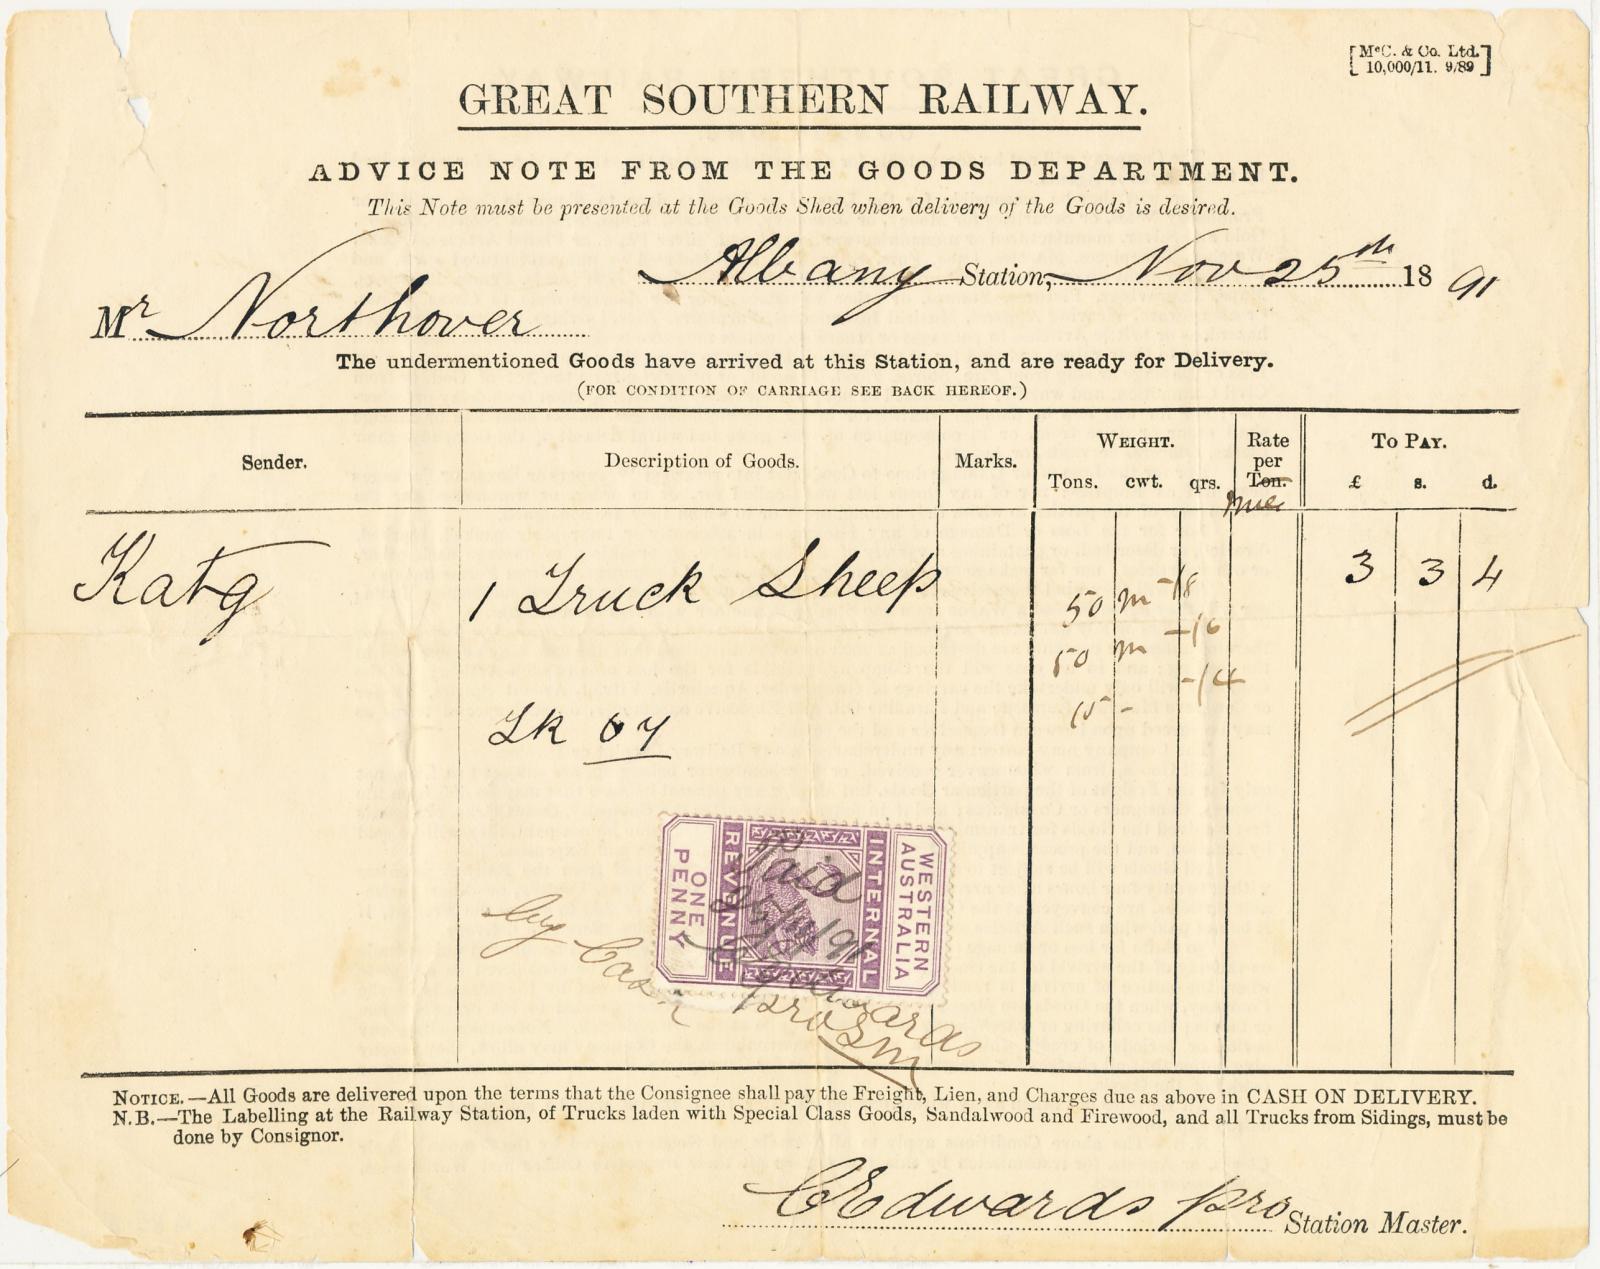 [McC. & Co. Ltd.
10,000/11. 9/89]
GREAT SOUTHERN RAILWAY.
ADVICE NOTE FROM THE GOODS DEPARTMENT.
This Note must be presented at the Goods Shed when delivery of the Goods is desired.
Albany Station, Nov 25th 1891
Mr Northover
The undermentioned Goods have arrived at this Station, and are ready for Delivery.
(FOR CONDITION OF CARRIAGE SEE BACK HEREOF.)
Sender. Description of Goods. Marks. WEIGHT. Tons. cwt. qrs. Rate per Ton. Mile TO PAY. £ s. d.
Katg 1 Truck Sheep 50 m -/8 3 3 4
50 m -/6
15 - -/4
Tk 67
WESTERN AUSTRALIA
INTERNAL
REVENUE
ONE PENNY
Paid
25/11/91
by Cash
CEdwards
pro SM
NOTICE.—All Goods are delivered upon the terms that the Consignee shall pay the Freight, Lien, and Charges due as above in CASH ON DELIVERY.
N.B.—The Labelling at the Railway Station, of Trucks laden with Special Class Goods, Sandalwood and Firewood, and all Trucks from Sidings, must be
done by Consignor.
CEdwards pro Station Master.